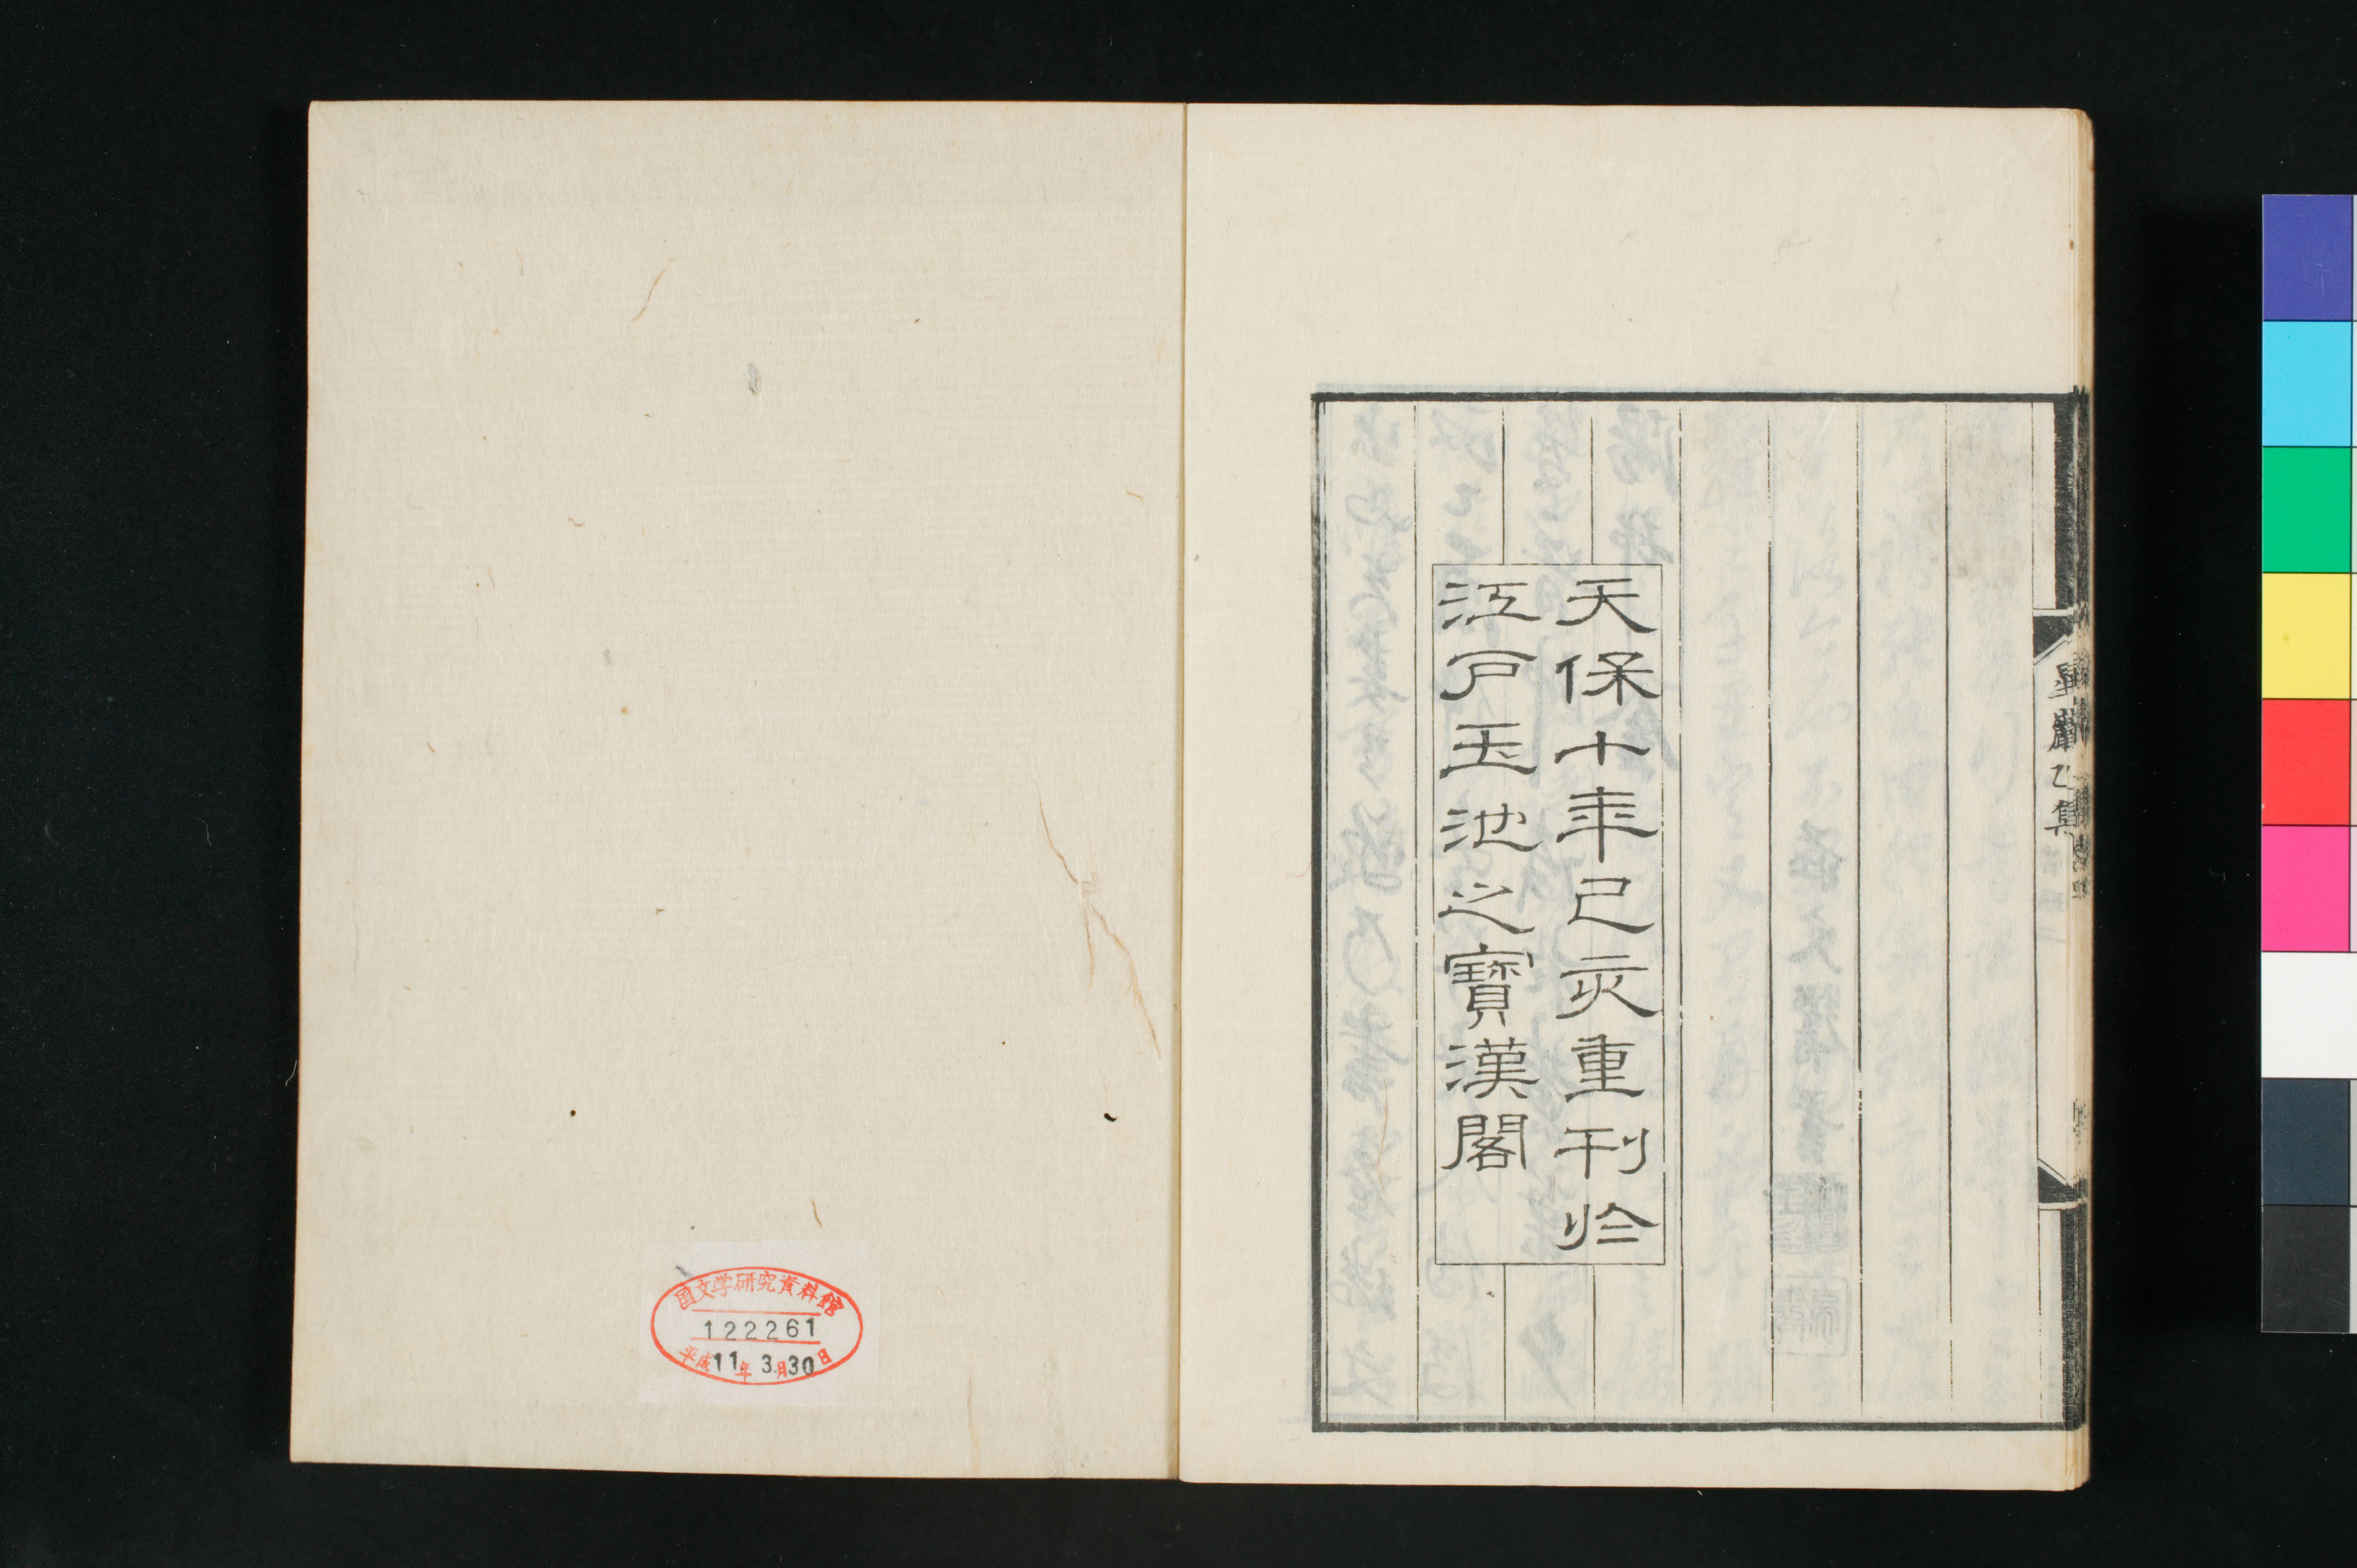 天保十年己亥重刊於
江戸玉池之寶漢閣
星巖乙集
国文学研究資料館
122261
平成11年3月30日